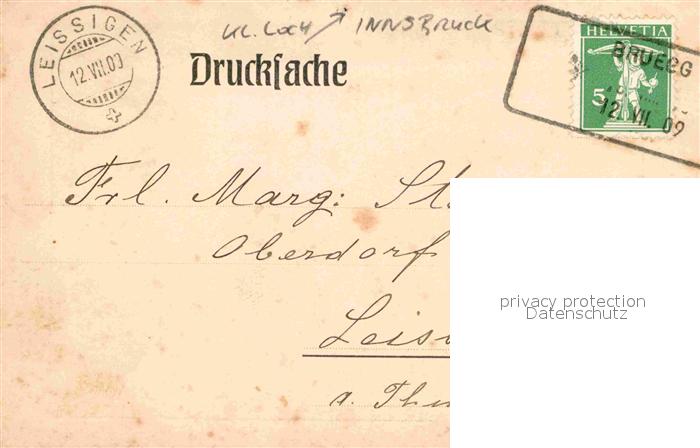 kl. Loch ↗ INNSBRUCK
LEISSIGEN
12.VII.09
Drucksache
HELVETIA
5
BRUEGG
12. VII. 09
Frl. Marg: St
Oberdorf
Leis
a. Thu
privacy protection
Datenschutz